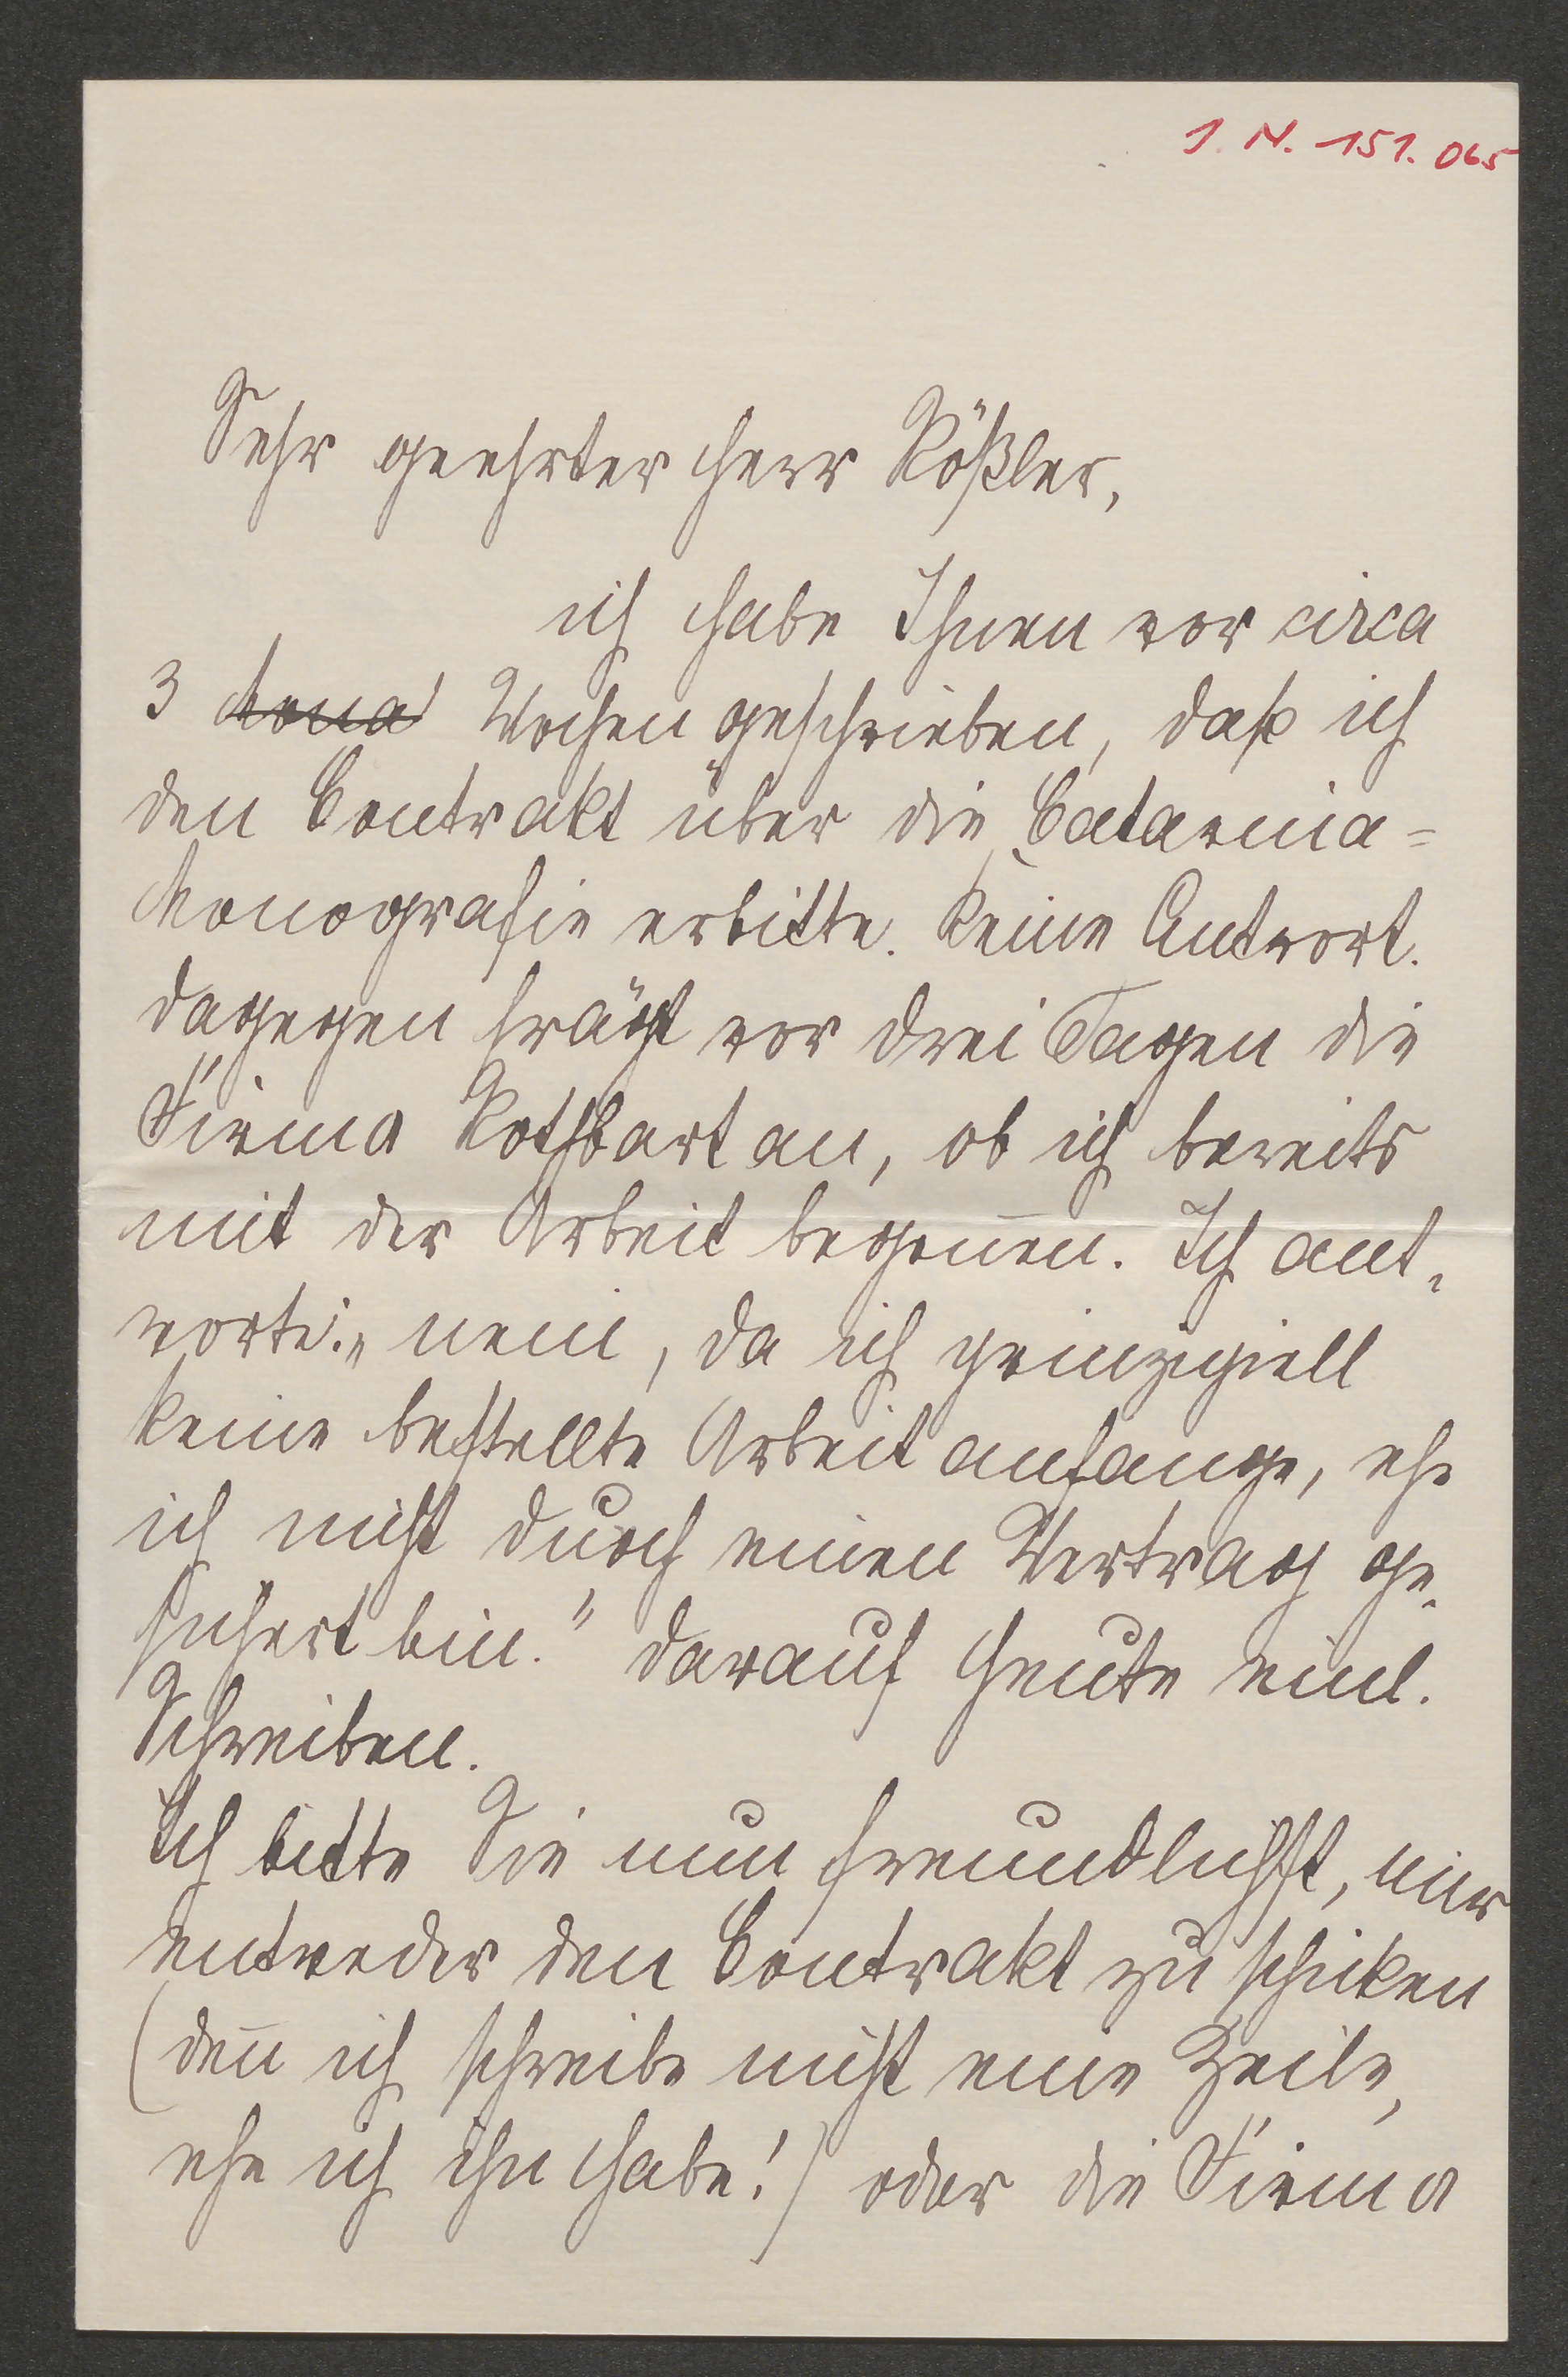 J. N. 151.065
Sehr geehrter Herr Rößler,
ich habe Ihnen vor circa
3 Mona Wochen geschrieben, daß ich
den Contrakt über die Catarina=
Monografie erbitte. Keine Antwort.
Dagegen frägt vor drei Tagen die
Firma Rothbart an, ob ich bereits
mit der Arbeit begonnen. Ich ant-
worte: „nein, da ich prinzipiell
keine bestellte Arbeit anfange, ehe
ich nicht durch einen Vertrag ge-
sichert bin." Darauf heute einl.
Schreiben.
Ich bitte Sie nun freundlichst, mir
entweder den Contrakt zu schicken
(denn ich schreibe nicht eine Zeile,
ehe ich ihn habe!) oder die Firma